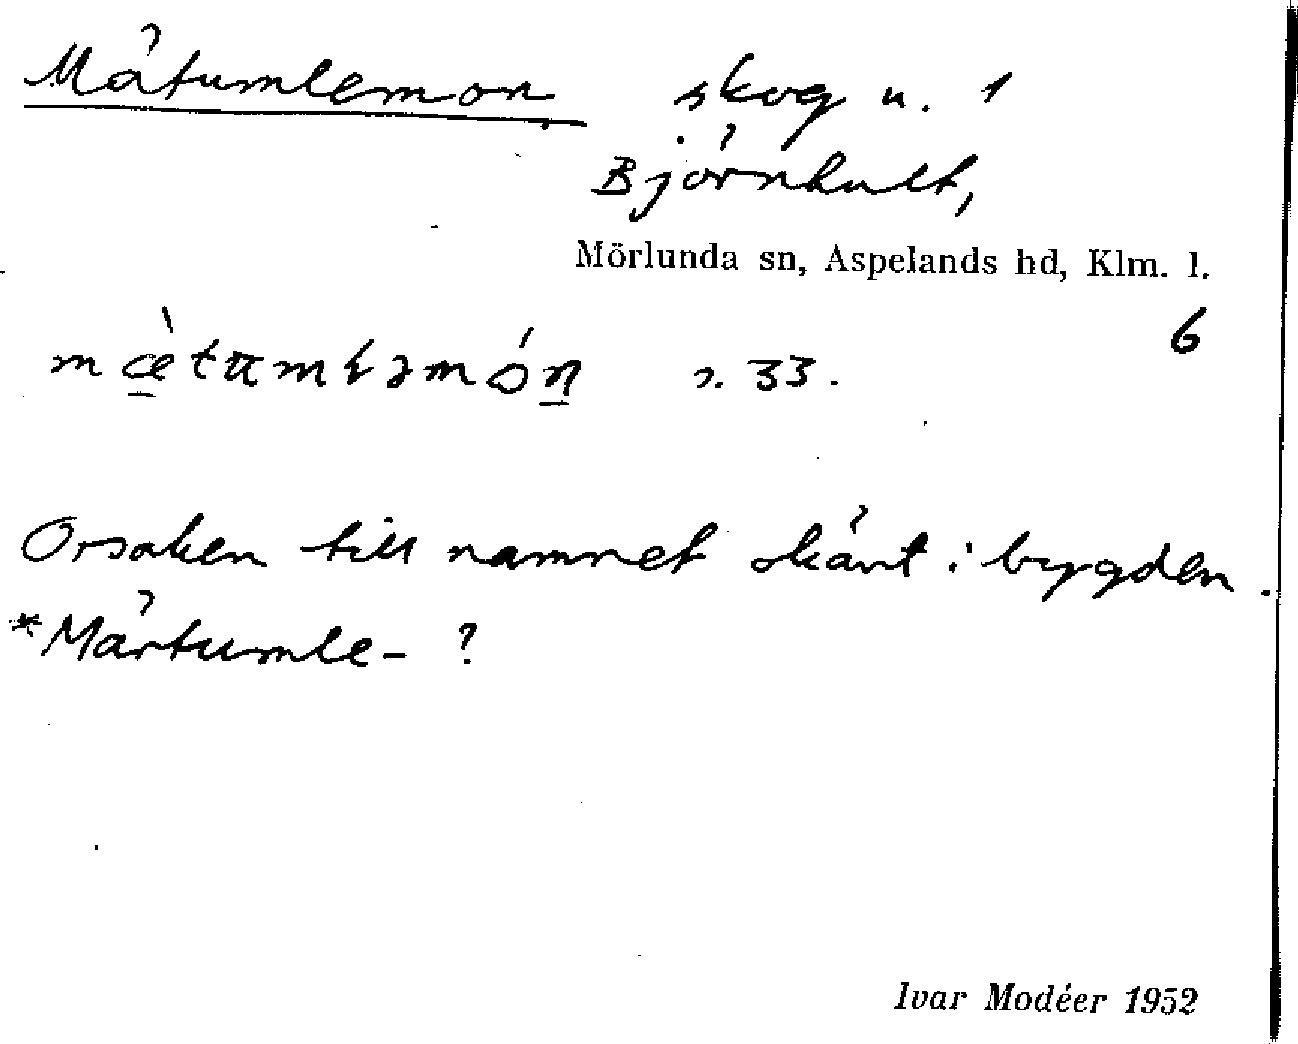 Mätumlemon skog u. 1
Björnhult,
Mörlunda sn, Aspelands hd, Klm. l.
6
mæ̀tumləmón s. 33.
Orsaken till namnet okänt i bygden.
*Märtumle- ?
Ivar Modéer 1952